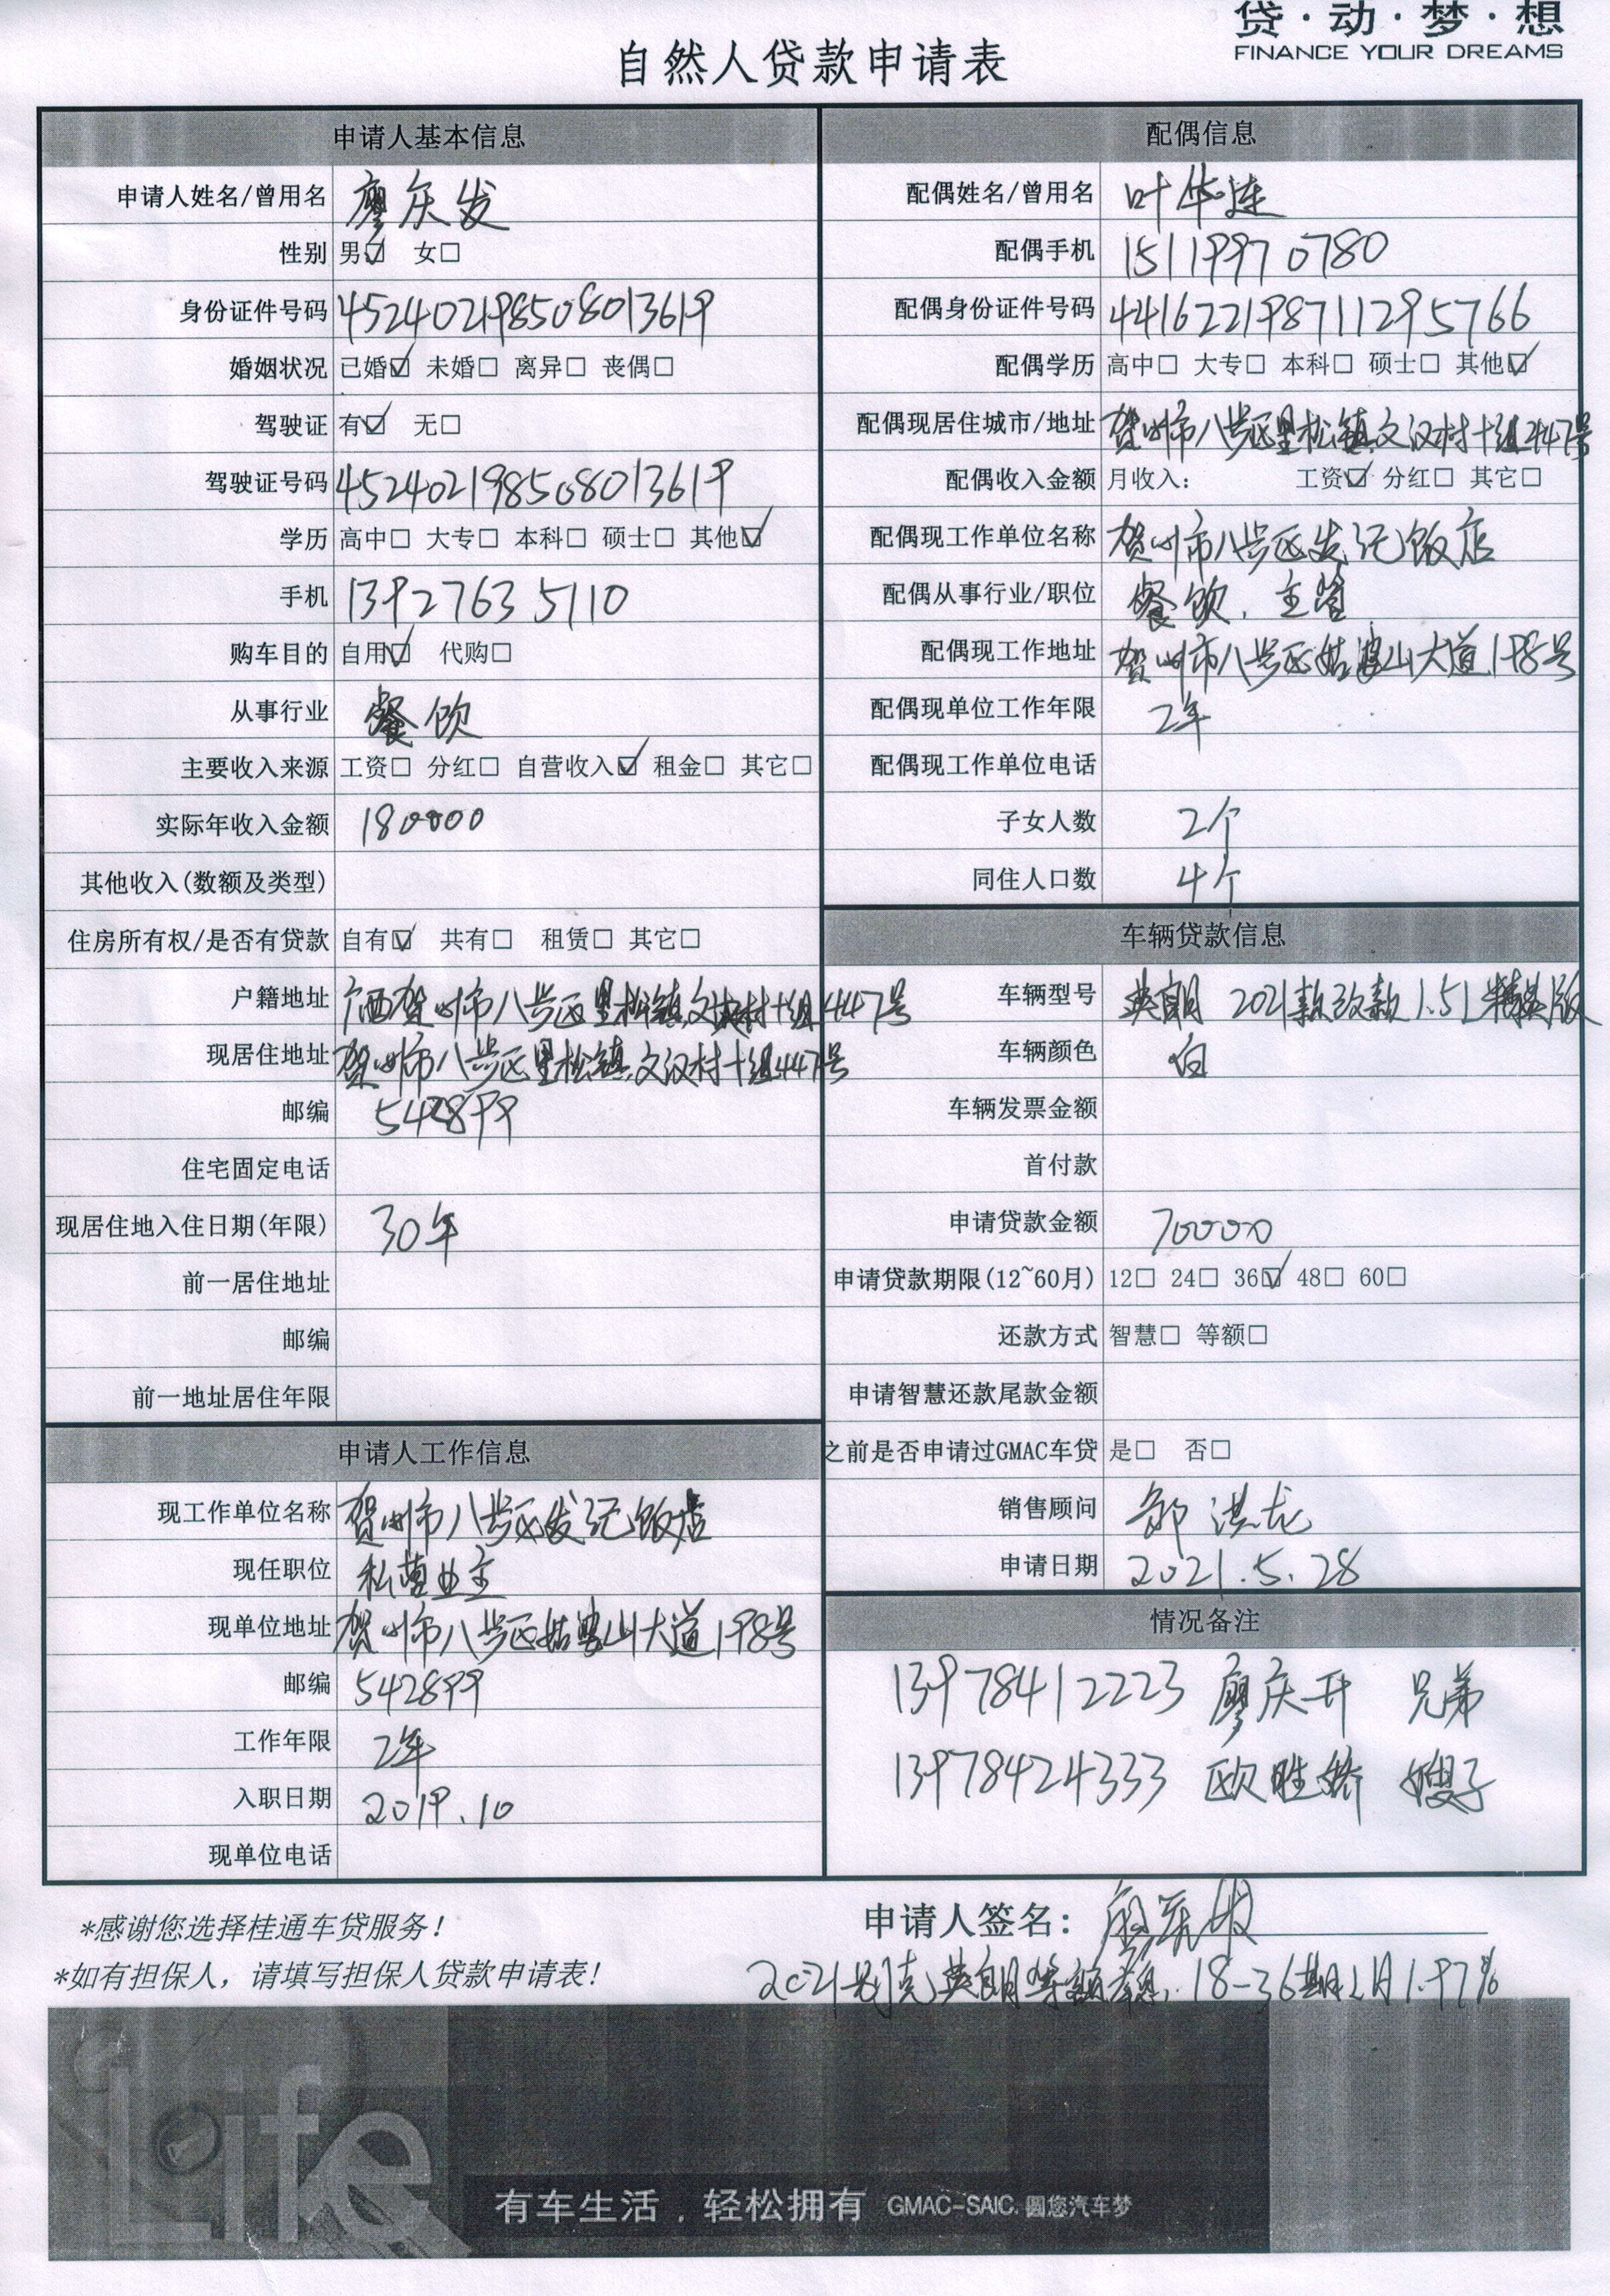 贷·动·梦·想
FINANCE YOUR DREAMS
自然人贷款申请表
申请人基本信息
申请人姓名/曾用名 廖庆发
性别 男☑ 女□
身份证件号码 452402198508013619
婚姻状况 已婚☑ 未婚□ 离异□ 丧偶□
驾驶证 有☑ 无□
驾驶证号码 452402198508013619
学历 高中□ 大专□ 本科□ 硕士□ 其他☑
手机 13927635110
购车目的 自用☑ 代购□
从事行业 餐饮
主要收入来源 工资□ 分红□ 自营收入☑ 租金□ 其它□
实际年收入金额 180000
其他收入(数额及类型)
住房所有权/是否有贷款 自有☑ 共有□ 租赁□ 其它□
户籍地址 广西贺州市八步区里松镇文汉村十组447号
现居住地址 贺州市八步区里松镇文汉村十组447号
邮编 542899
住宅固定电话
现居住地入住日期(年限) 30年
前一居住地址
邮编
前一地址居住年限
申请人工作信息
现工作单位名称 贺州市八步区发记饭店
现任职位 私营业主
现单位地址 贺州市八步区姑婆山大道198号
邮编 542899
工作年限 2年
入职日期 2019.10
现单位电话
配偶信息
配偶姓名/曾用名 叶华连
配偶手机 15119970780
配偶身份证件号码 441622198711295766
配偶学历 高中□ 大专□ 本科□ 硕士□ 其他☑
配偶现居住城市/地址 贺州市八步区里松镇文汉村十组447号
配偶收入金额 月收入: 工资☑ 分红□ 其它□
配偶现工作单位名称 贺州市八步区发记饭店
配偶从事行业/职位 餐饮、主管
配偶现工作地址 贺州市八步区姑婆山大道198号
配偶现单位工作年限 2年
配偶现工作单位电话
子女人数 2个
同住人口数 4个
车辆贷款信息
车辆型号 英朗 2021款改款1.5L精英版
车辆颜色 白
车辆发票金额
首付款
申请贷款金额 70000
申请贷款期限(12~60月) 12□ 24□ 36☑ 48□ 60□
还款方式 智慧□ 等额□
申请智慧还款尾款金额
之前是否申请过GMAC车贷 是□ 否□
销售顾问 邹洪龙
申请日期 2021.5.28
情况备注
13978412223 廖庆开 兄弟
13978424333 欧胜娇 嫂子
申请人签名: 廖庆发
*感谢您选择桂通车贷服务!
*如有担保人, 请填写担保人贷款申请表!
2021别克英朗等额 18-36期 1.97%
Life
有车生活,轻松拥有 GMAC-SAIC. 圆您汽车梦